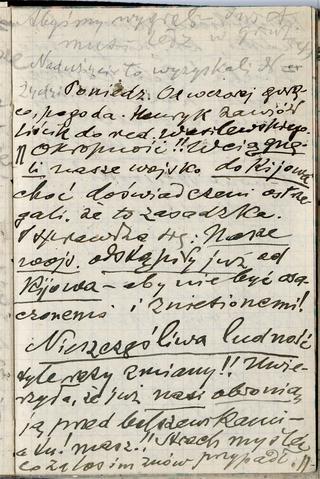 Abyśmy wygrali
musi
Nadużycie to wyzyskali
żydzi. Poniedz. Od wczoraj gorą-
co, pogoda. Henryk zawiózł
liścik do red. Wasilewskiego.
Okropność!! Wciągnę-
li nasze wojsko do Kijowa
choć doświadczeni ostrze-
gali, że to zasadzka.
I sprawdza się. Nasze
wojs. odstąpiły już od
Kijowa – aby nie być oto-
czonemi i zniesionemi!
Nieszczęśliwa ludność
tyle razy zmiany!! Uwie-
rzyła, że już nasi obronią
ją przed bolszewikami –
a tu! masz!! Strach myśleć
co za los im znów przypadł.